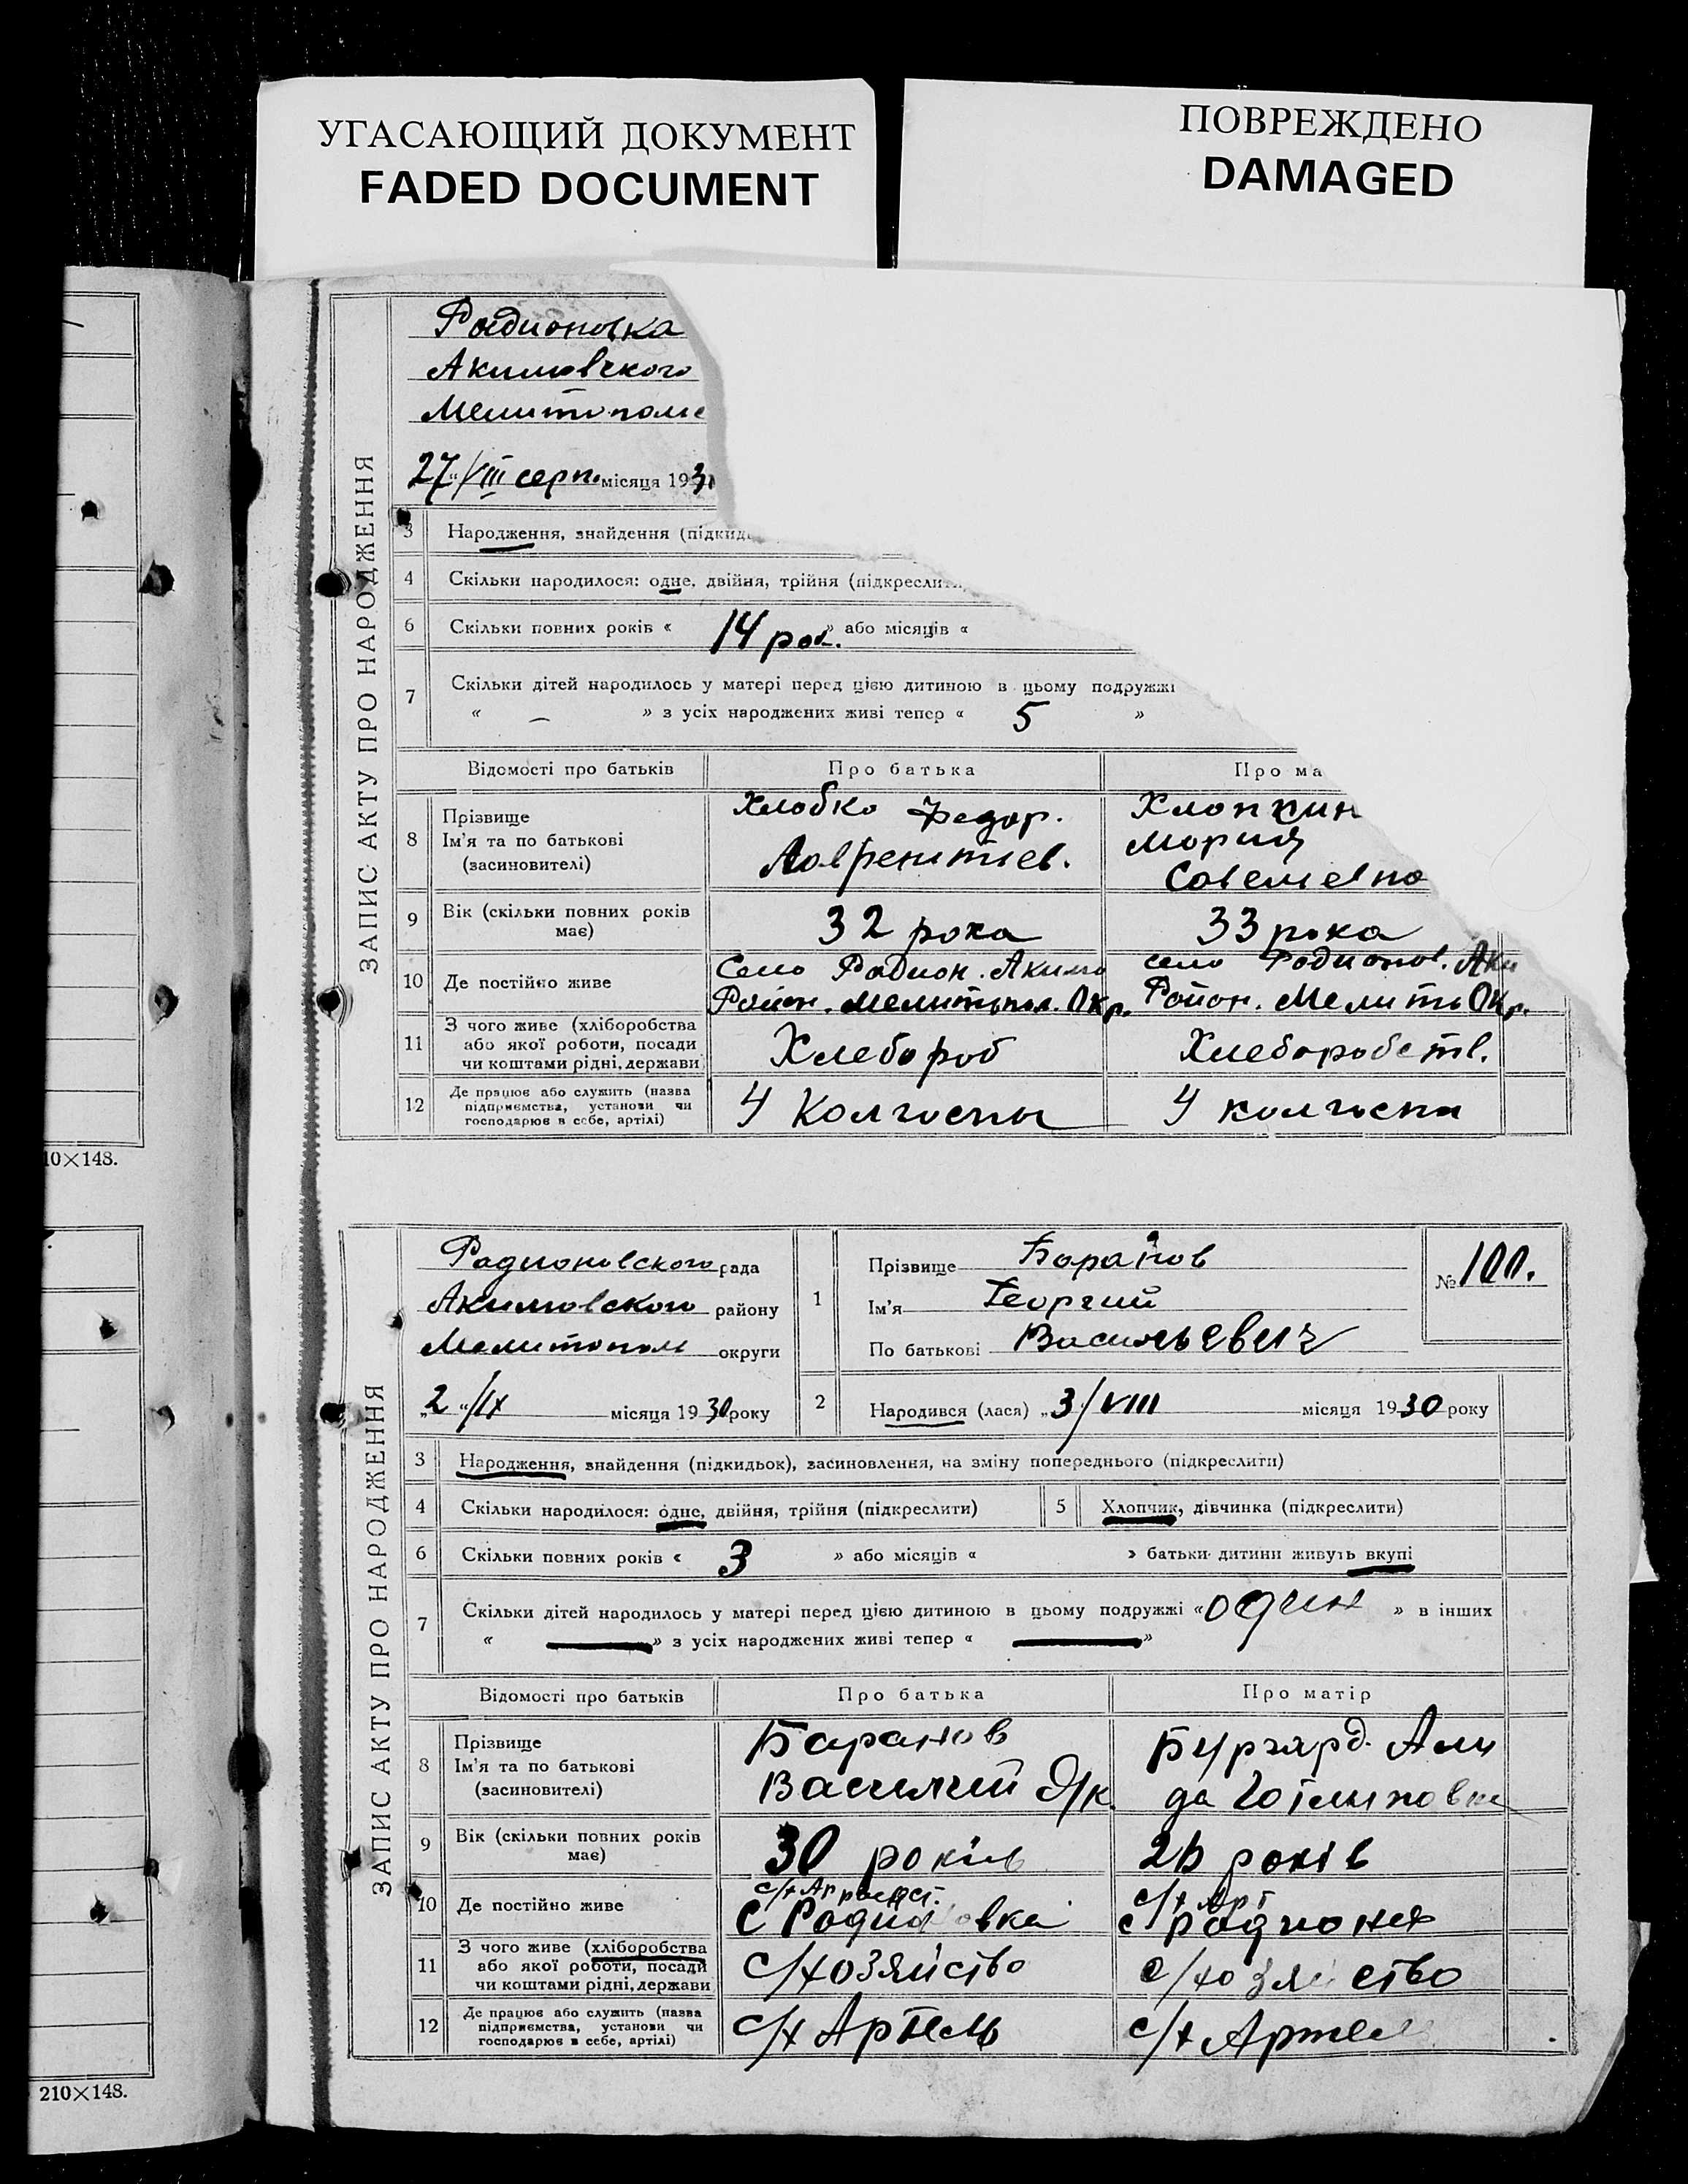 УГАСАЮЩИЙ ДОКУМЕНТ
FADED DOCUMENT
ПОВРЕЖДЕНО
DAMAGED
ЗАПИС АКТУ ПРО НАРОДЖЕННЯ
Радионовка
Акимовского
Мелитополе
27 "/VIII серп. місяця 193
3 Народження, знайдення (підкид
4 Скільки народилося: одне, двійня, трійня (підкреслити
6 Скільки повних років « 14 рок. » або місяців «
7 Скільки дітей народилось у матері перед цією дитиною в цьому подружжі
« — » з усіх народжених живі тепер « 5 »
Відомості про батьків Про батька Про ма
8 Прізвище Ім'я та по батькові (засиновителі)
Федор.
Хлопкин
Мория
9 Вік (скільки повних років має) 32 рока 33 рока
10 Де постійно живе
Село Радион. Акимо
Район. Мелитопол. Окр.
село Родионов. Аки
Район. Мелито Окр.
11 З чого живе (хліборобства або якої роботи, посади чи коштами рідні, держави Хлебороб Хлеборобств.
12 Де працює або служить (назва підприємства, установи чи господарює в себе, артілі) У Колгоспы У колгоспи
10×148.
ЗАПИС АКТУ ПРО НАРОДЖЕННЯ
Радионовского рада
Акимовского району
Мелитополь округи
„2 "/IX місяця 1930 року
1 Прізвище Баранов
Ім'я Георгий
По батькові Васильевич
№ 100.
2 Народився (лася) „3/VIII місяця 1930 року
3 Народження, знайдення (підкидьок), засиновлення, на зміну попереднього (підкреслити)
4 Скільки народилося: одне, двійня, трійня (підкреслити) 5 Хлопчик, дівчинка (підкреслити)
6 Скільки повних років « 3 » або місяців « » батьки дитини живуть вкупі
7 Скільки дітей народилось у матері перед цією дитиною в цьому подружжі « один » в інших
« — » з усіх народжених живі тепер « — »
Відомості про батьків Про батька Про матір
8 Прізвище Ім'я та по батькові (засиновителі)
Баранов
Василий
Бургард. Али
да
9 Вік (скільки повних років має) 30 років років
10 Де постійно живе
с Радионовка
с/х Арт
с Радионов
11 З чого живе (хліборобства або якої роботи, посади чи коштами рідні, держави с/хозяйство с/хозяйство
12 Де працює або служить (назва підприємства, установи чи господарює в себе, артілі) с/х Артель с/х Артель
210×148.